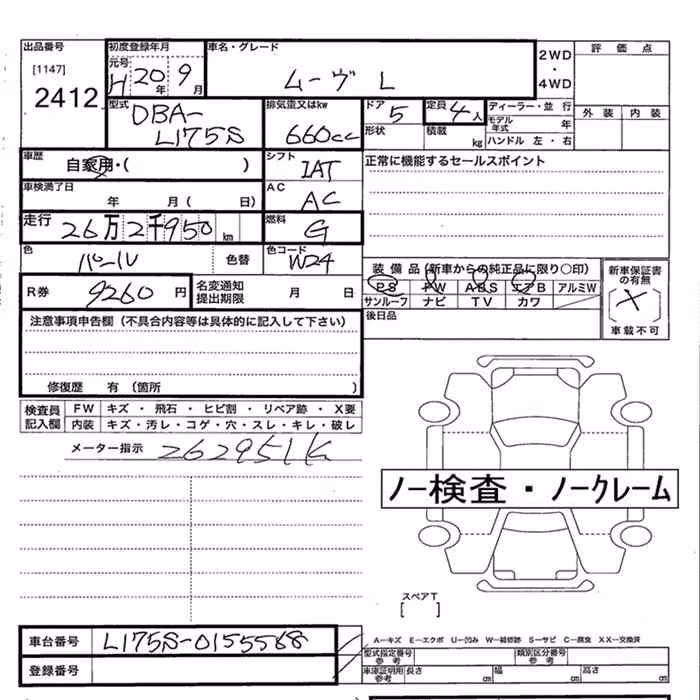 出品番号 初度登録年月 車名・グレード 2WD 評価点
[1147] 元号 ・
2412 H 20年 9月 ムーヴ L 4WD
型式 排気量又はkw ドア 定員 ディーラー・並行 外装 内装
DBA- 5 4人 モデル年式 年
L175S 660cc 形状 積載 kg ハンドル 左・右
車歴 自家用・( ) シフト IAT 正常に機能するセールスポイント
車検満了日 AC
年 月( 日) AC
走行 26万2千950km 燃料 G
色 パール 色替 色コード W24
装備品(新車からの純正品に限り○印) 新車保証書の有無
R券 9260円 名変通知提出期限 月 日
PS PW ABS エアB アルミW ×
サンルーフ ナビ TV カワ 車載不可
注意事項申告欄(不具合内容等は具体的に記入して下さい) 後日品
修復歴 有(箇所 )
検査員 FW キズ・飛石・ヒビ割・リペア跡・X要
記入欄 内装 キズ・汚レ・コゲ・穴・スレ・キレ・破レ
メーター指示 262951K
ノー検査・ノークレーム
スペアT
[ ]
車台番号 L175S-0155568 A-キズ E-エクボ U-凹み W-補修跡 S-サビ C-腐食 XX-交換済
型式指定番号参考 類別区分番号参考
登録番号 車庫証明用参考 長さ cm 幅 cm 高さ cm